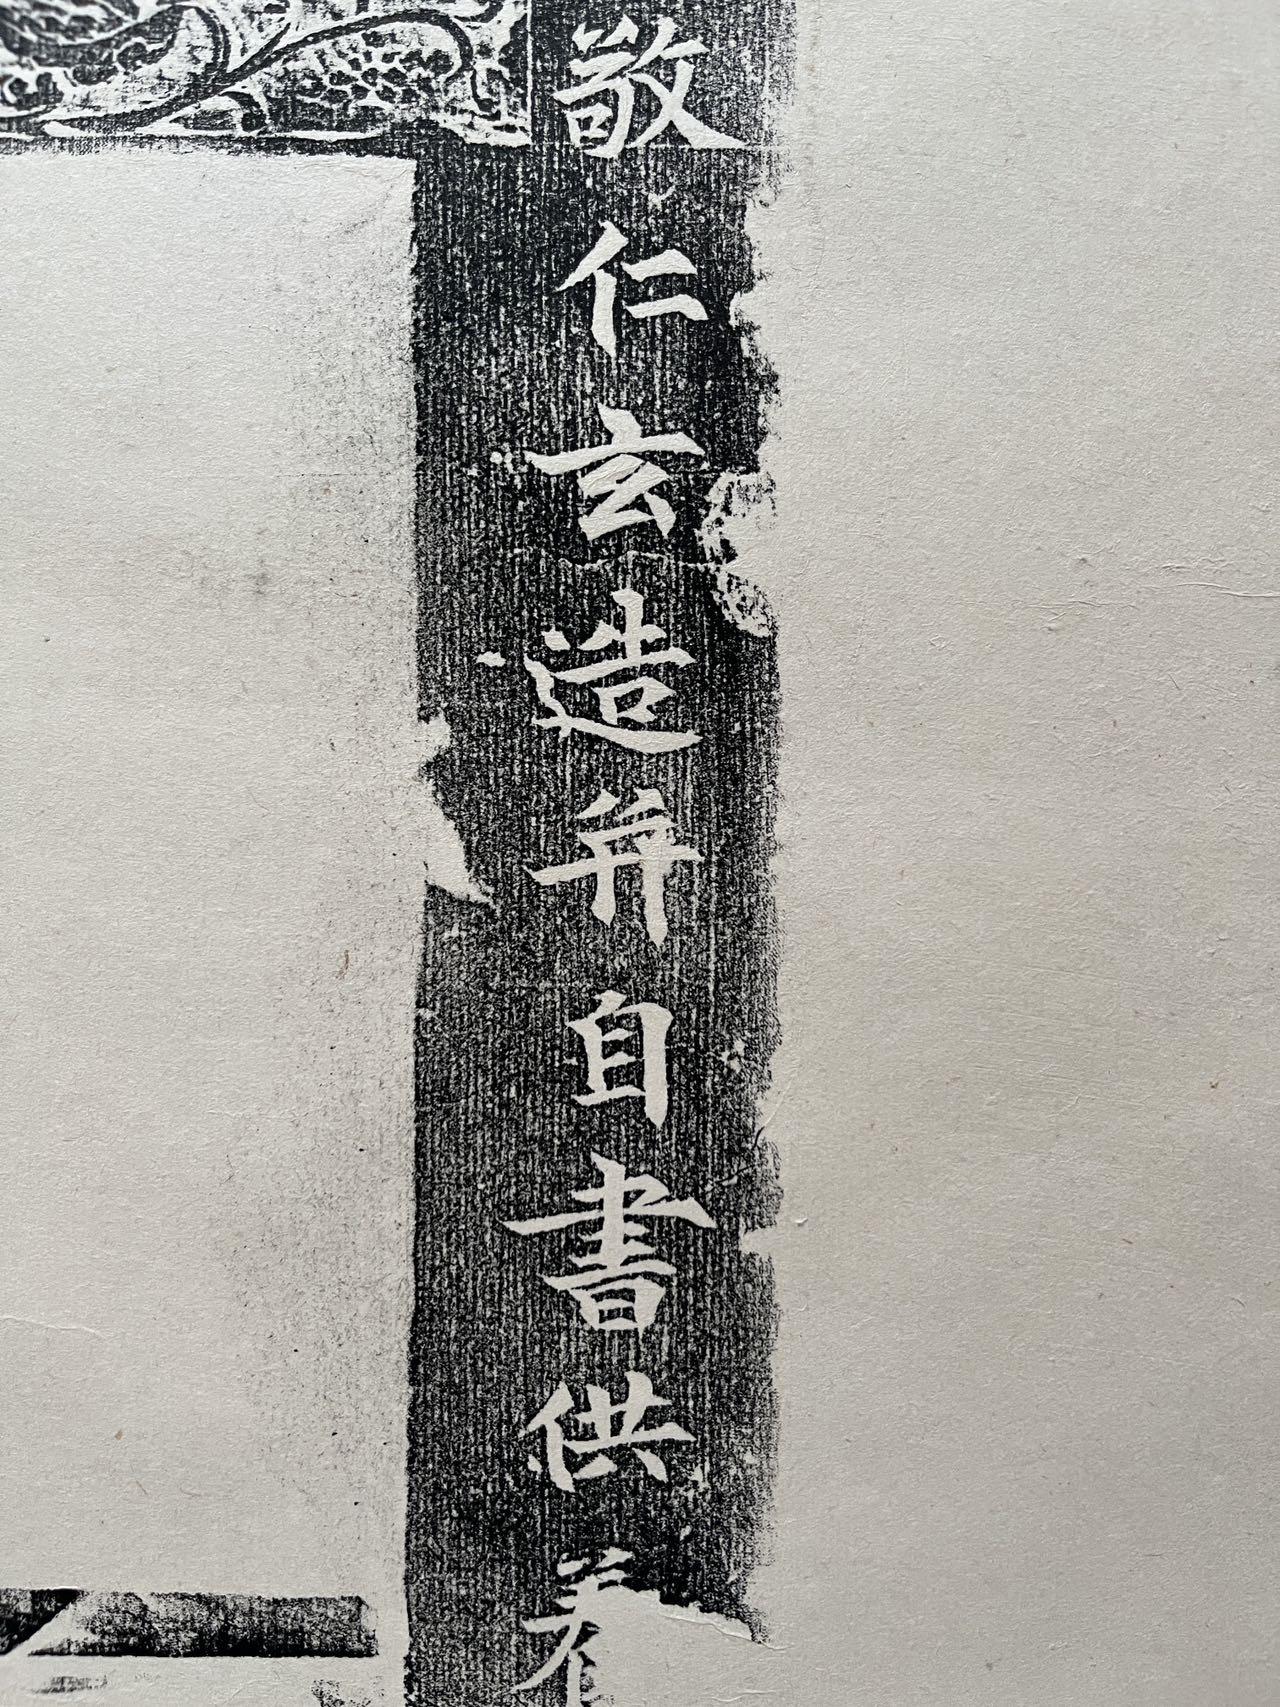 敬仁玄造并自書供養